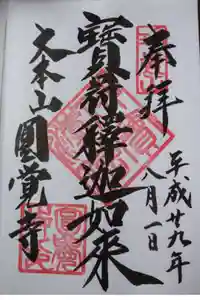 奉拝
平成廿九年
八月一日
寶荷釋迦如来
大本山圓覚寺